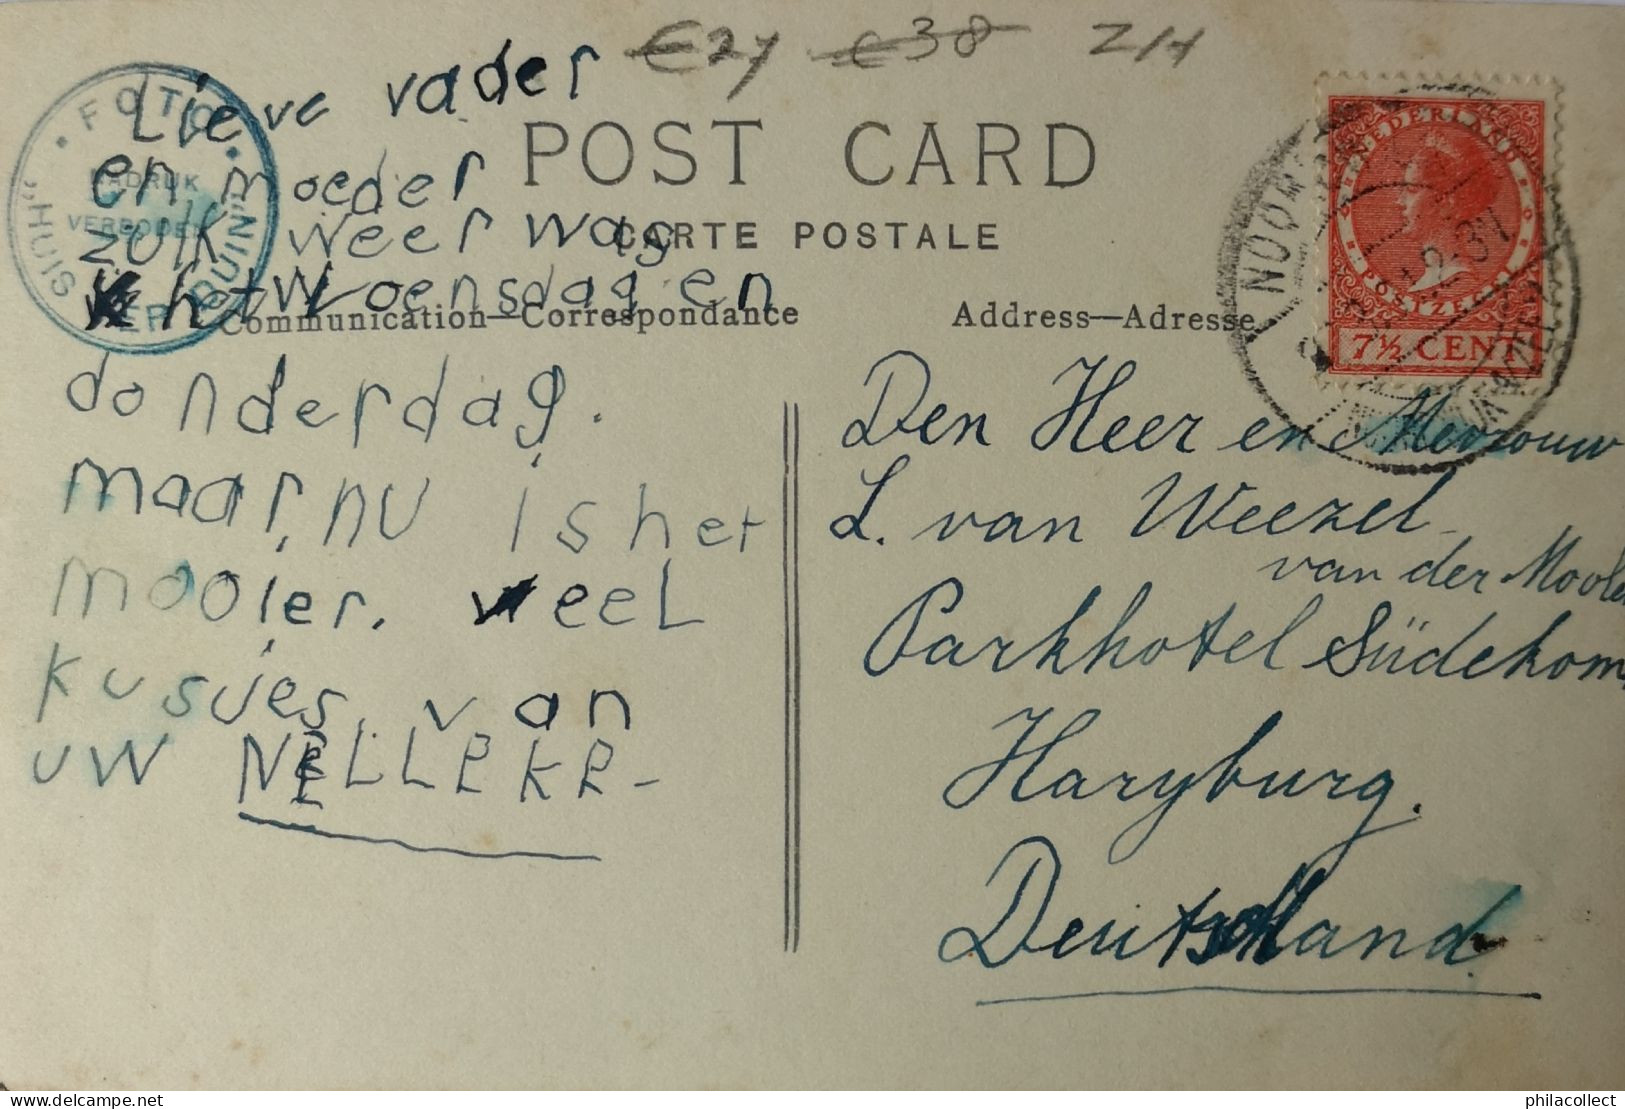 €27 €38 ZH
Lieve vader
en moeder
zulk weer was
het woensdag en
donderdag.
maar nu is het
mooier. veel
kusjes van
uw NELLEKE-
POST CARD
CARTE POSTALE
Communication—Correspondance
Address—Adresse
FOTO
"HUIS TER DUIN"
NADRUK
VERBODEN
NEDERLAND
POSTZEGEL
7½ CENT
Den Heer en Mevrouw
L. van Weezel-
van der Moolen
Parkhotel Südekom,
Haryburg.
Deutschland
philacollect